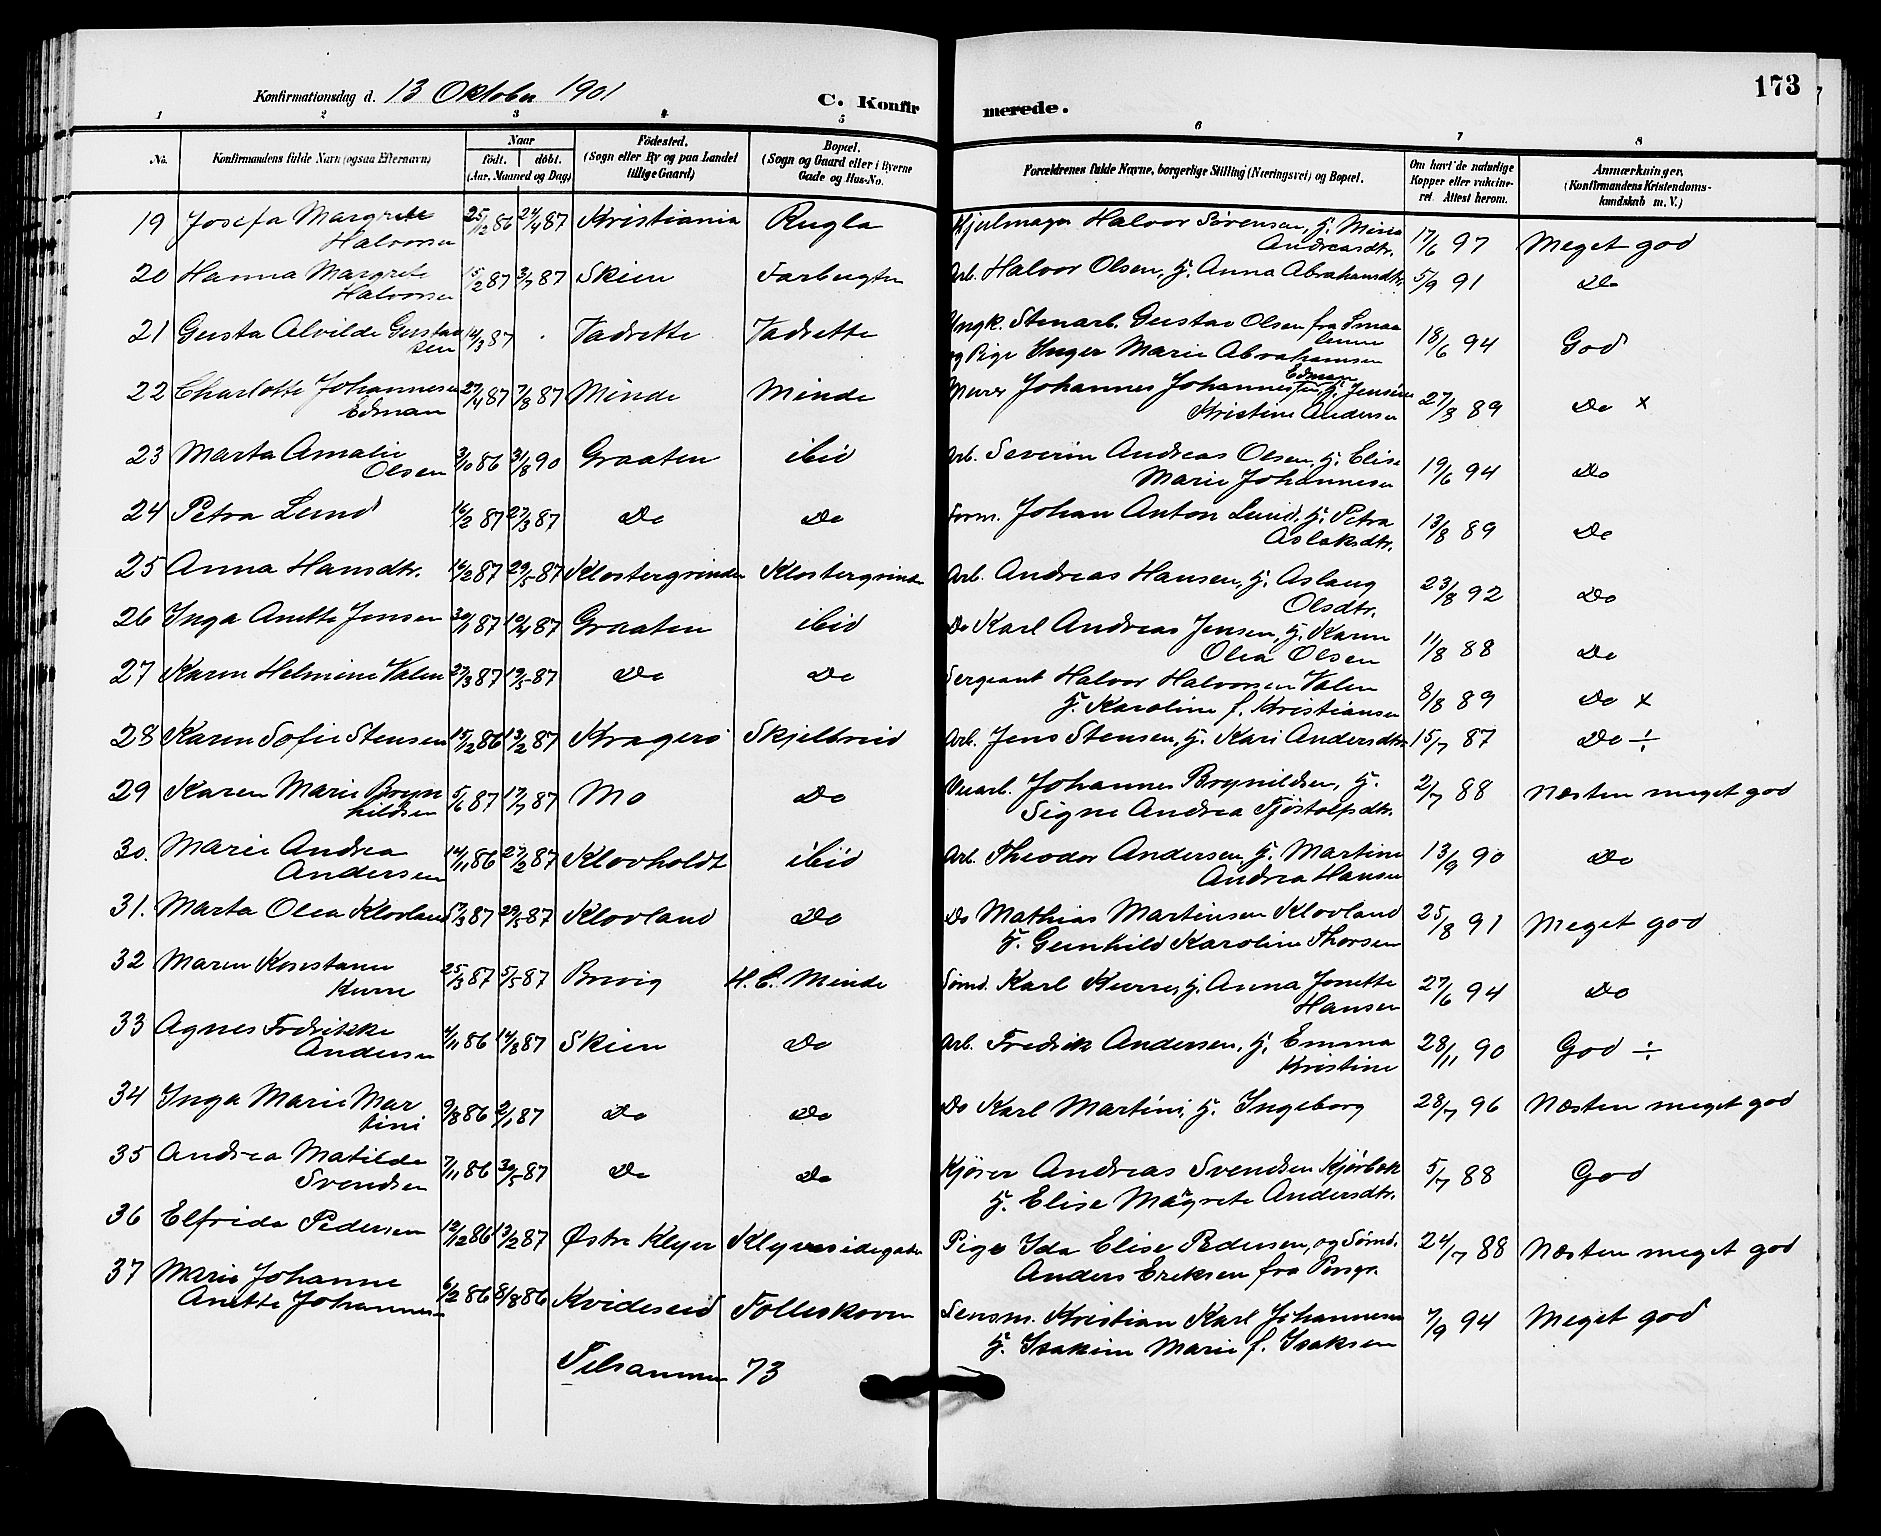 Konfirmationsdag d. 13 Oktober 1901
C. Konfir merede.
173
1 2 3 4 5 6 7 8
No. Konfirmandens fulde Navn (ogsaa Efternavn) Naar födt. döbt. (Aar, Maaned og Dag) Födested. (Sogn eller By og paa Landet tillige Gaard) Bopæl. (Sogn og Gaard eller i Byerne Gade og Hus-No. Forældrenes fulde Navne, borgerlige Stilling (Næringsvei) og Bopæl. Om havt de naturlige Kopper eller vakcineret. Attest herom. Anmærkninger. (Konfirmandens Kristendomskundskab m. V.)
19 Josefa Margrete Halvorsen 25/12 86 24/4 87 Kristiania Rugla Hjulmager Halvor Sörensen, H. Mina Andreasdtr. 17/6 97 Meget god
20 Hanna Margrete Halvorsen 15/2 87 3/7 87 Skien Arb. Halvor Olsen, H. Anna Abrahamsdtr 5/9 91 Do
21 Gusta Alvilde Gustavsen 14/3 87 Vadrette Vadrette Ungk. Stenarb. Gustav Olsen fra Smaalenene
og Pige Inger Marie Abrahamsen 18/6 94 God
22 Charlotte Johannesen Edman 27/4 87 7/8 87 Minde Minde Murer Johannes Johannessen Edman, H. Jensine
Kristine Andersen 27/3 89 Do x
23 Marta Amalie Olsen 3/10 86 31/8 90 Graaten ibid Arb. Severin Andreas Olsen, H. Elise
Marie Johannesen 19/6 94 Do
24 Petra Lund 16/2 87 27/3 87 Do Do Form. Johan Anton Lund, H. Petra
Aslaksdtr. 13/8 89 Do
25 Anna Hansdtr. 16/2 87 29/5 87 Klostergrinden Klostergrinden Arb. Andreas Hansen, H. Aslaug
Olsdtr. 23/8 92 Do
26 Inga Anette Jensen 30/1 87 10/4 87 Graaten ibid Do Karl Andreas Jensen, H. Karen
Olea Olsen 11/8 88 Do
27 Karen Helmine Valen 27/3 87 19/5 87 Do Do Sergeant Halvor Halvorsen Valen
H. Karoline f. Kristiansen 8/8 89 Do x
28 Karen Sofie Stensen 15/12 86 13/2 87 Kragerö Skjelbreid Arb. Jens Stensen, H. Kari Andersdtr 15/7 87 Do ÷
29 Karen Marie Brynhildsen 5/6 87 17/7 87 Mo Do Johannes Brynildsen, H.
Signe Andrea Tjöstolfsdtr. 2/7 88 Næsten meget god
30. Marie Andrea Andersen 14/11 86 27/2 87 Klovholdt ibid Arb. Theodor Andersen, H. Martine
Andrea Hansen 13/9 90 Do
31. Marta Olea Klovland 17/3 87 29/5 87 Klovland Do Do Mathias Martinsen Klovland
H. Gunhild Karoline Thorsen 25/8 91 Meget god
32 Maren Konstanse 25/3 87 5/5 87 Brevig H. C. Minde Sömd. Karl H. Anna Jonette
Hansen 27/6 94 Do
33 Agnes Fredrikke Andersen 4/11 86 14/8 87 Skien Do Arb. Fredrik Andersen, H. Emma
Kristine 28/11 90 God ÷
34 Inga Marie Martini 9/8 86 2/1 87 Do Do Do Karl Martini, H. Ingeborg 28/7 96 Næsten meget god
35 Andrea Matilde Svendsen 7/11 86 30/5 87 Do Do Kjörer Andreas Svendsen Kjörbek
H. Elise Magrete Andersdtr. 5/7 88 God
36 Elfrida Pedersen 12/12 86 13/2 87 Østre Klyver Klyvesidegaten Pige Ida Elise Pedersen, og Sömd.
Anders Eriksen fra Porsgr. 24/7 88 Næsten meget god
37 Marie Johanne Anette Johannesen 6/2 86 8/8 86 Kvideseid Follaskoven Lensm. Kristian Karl Johannesen
H. Isakine Marie f. Isaksen 7/9 94 Meget god
Tilsammen 73